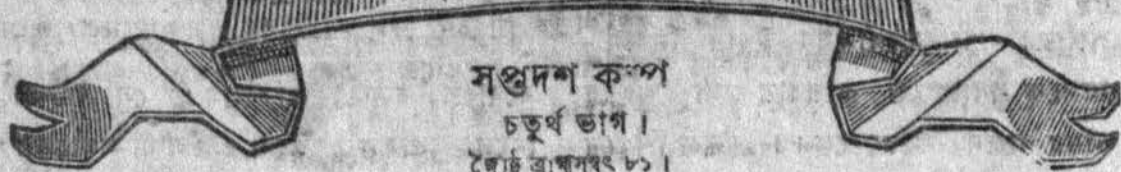 সপ্তদশ কল্প
চতুর্থ ভাগ।
জ্যৈষ্ঠ ব্রাহ্মসম্বৎ ৮১।